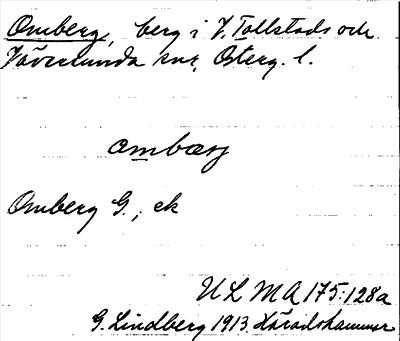 Omberg, berg i V. Tollstads och
Väversunda snr, Österg. l.
ombærj
Omberg G., ek
ULMA 175:128a
G. Lindberg 1913. Häradshammar